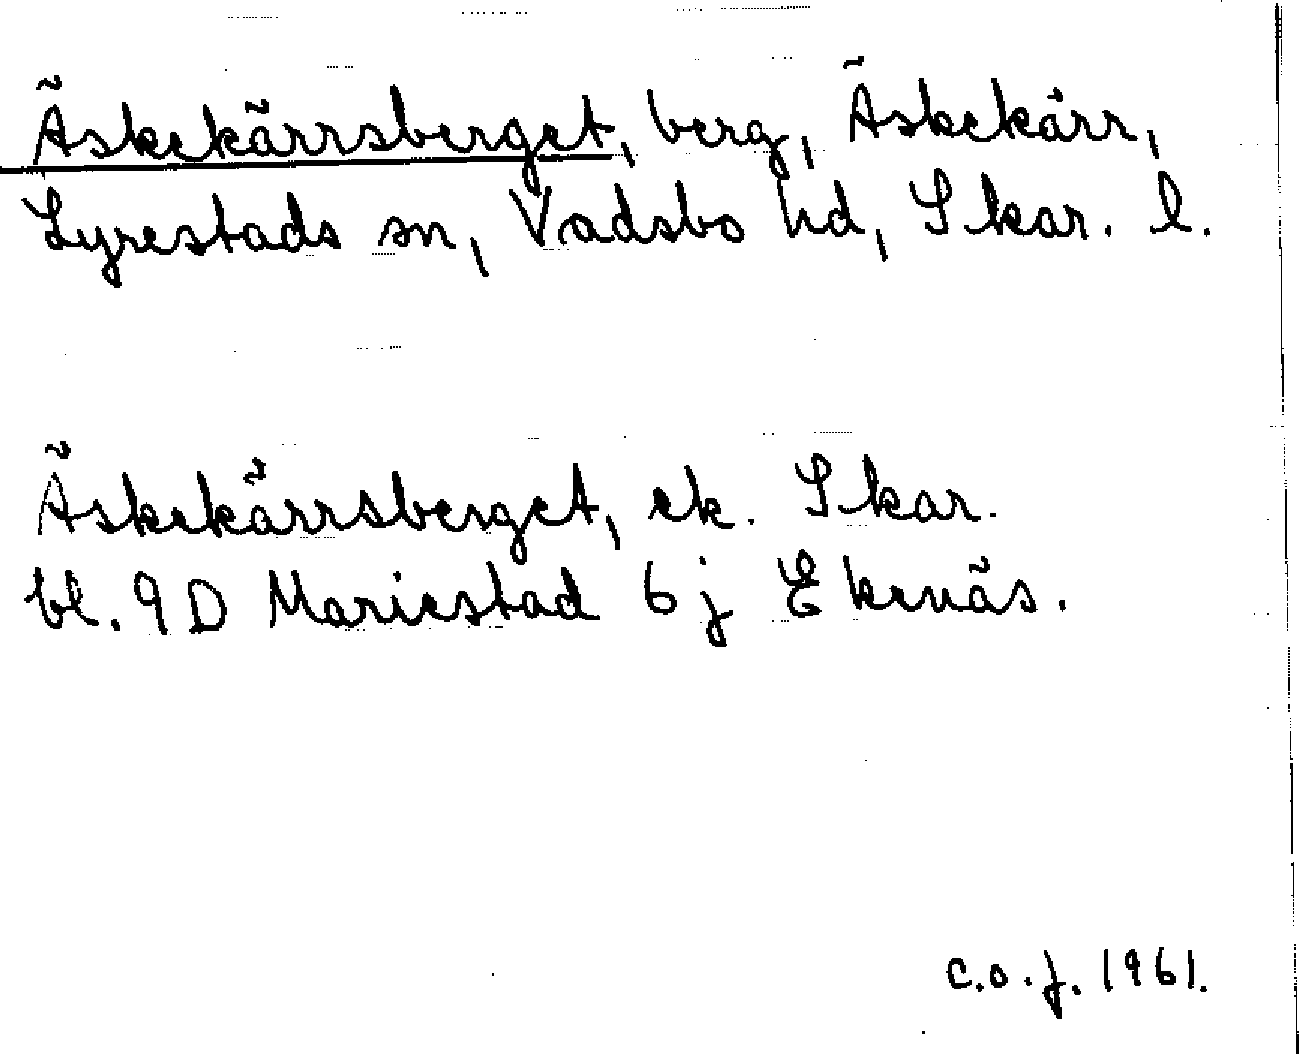 Äskekärrsberget, berg, Äskekärr,
Lyrestads sn, Vadsbo hd, Skar. l.
Äskekärrsberget, ek. Skar.
bl. 9D Mariestad 6j Ekenäs.
C.O.J. 1961.